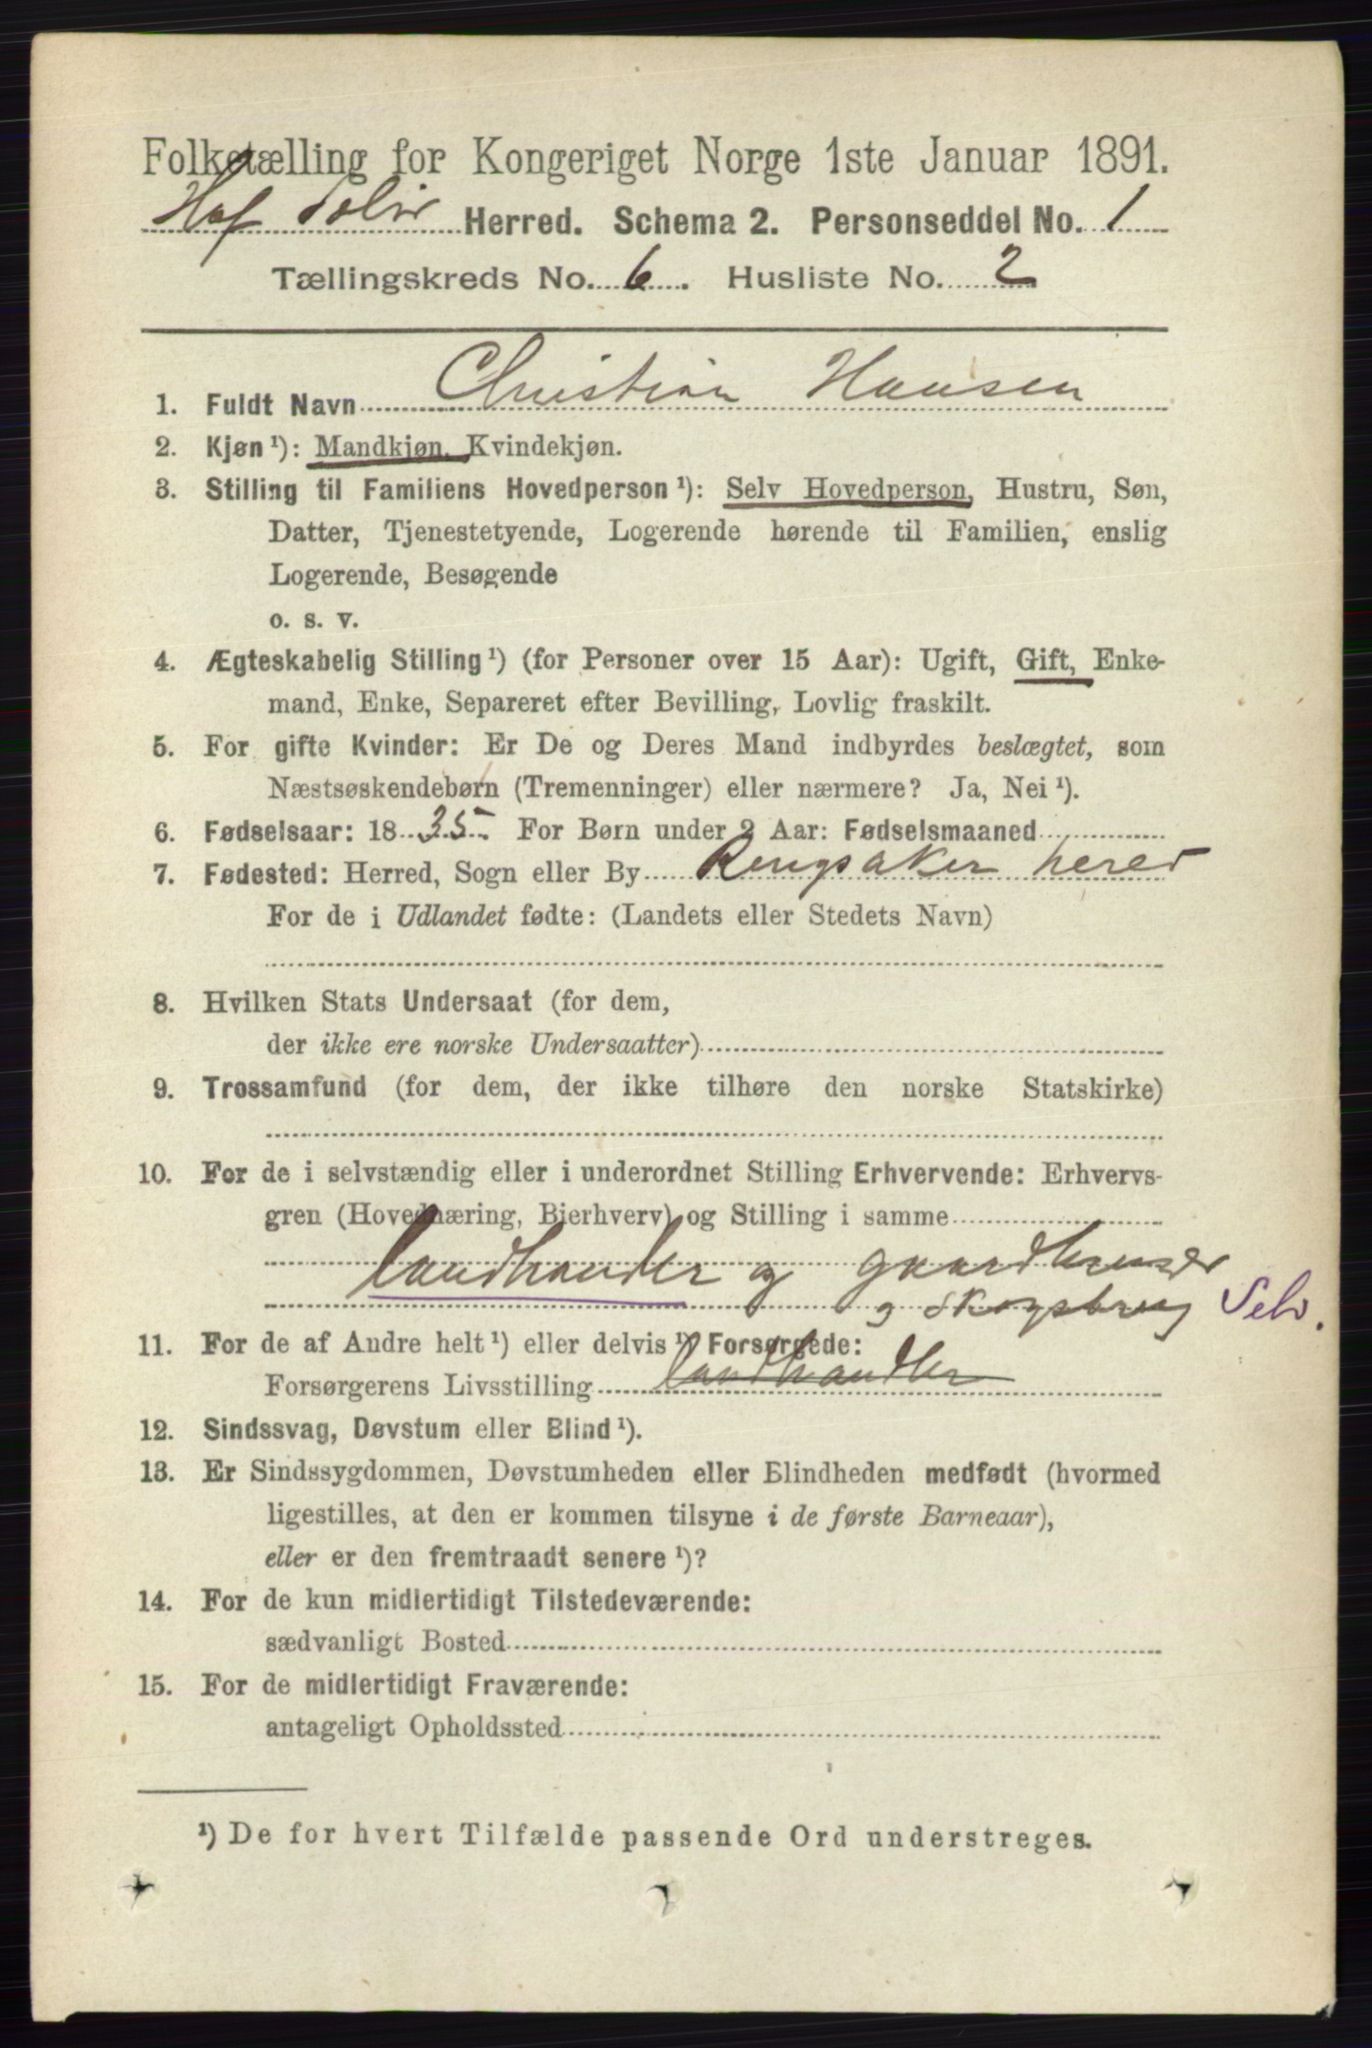 Folketælling for Kongeriget Norge 1ste Januar 1891.
Hof Solør Herred. Schema 2. Personseddel No. 1
Tællingskreds No. 6. Husliste No. 2
1. Fuldt Navn Christian Hansen
2. Kjøn¹): Mandkjøn, Kvindekjøn.
3. Stilling til Familiens Hovedperson¹): Selv Hovedperson, Hustru, Søn,
Datter, Tjenestetyende, Logerende hørende til Familien, enslig
Logerende, Besøgende
o. s. v.
4. Ægteskabelig Stilling¹) (for Personer over 15 Aar): Ugift, Gift, Enke-
mand, Enke, Separeret efter Bevilling, Lovlig fraskilt.
5. For gifte Kvinder: Er De og Deres Mand indbyrdes beslægtet, som
Næstsøskendebørn (Tremenninger) eller nærmere? Ja, Nei¹).
6. Fødselsaar: 1835 For Børn under 2 Aar: Fødselsmaaned
7. Fødested: Herred, Sogn eller By Ringsaker herred
For de i Udlandet fødte: (Landets eller Stedets Navn)
8. Hvilken Stats Undersaat (for dem,
der ikke ere norske Undersaatter)
9. Trossamfund (for dem, der ikke tilhøre den norske Statskirke)
10. For de i selvstændig eller i underordnet Stilling Erhvervende: Erhvervs-
gren (Hovednæring, Bierhverv) og Stilling i samme
landhandler og gaardbruger
og Skogsbrug Selv.
11. For de af Andre helt¹) eller delvis¹) Forsørgede:
Forsørgerens Livsstilling landhandler
12. Sindssvag, Døvstum eller Blind¹).
13. Er Sindssygdommen, Døvstumheden eller Blindheden medfødt (hvormed
ligestilles, at den er kommen tilsyne i de første Barneaar),
eller er den fremtraadt senere¹)?
14. For de kun midlertidigt Tilstedeværende:
sædvanligt Bosted
15. For de midlertidigt Fraværende:
antageligt Opholdssted
¹) De for hvert Tilfælde passende Ord understreges.